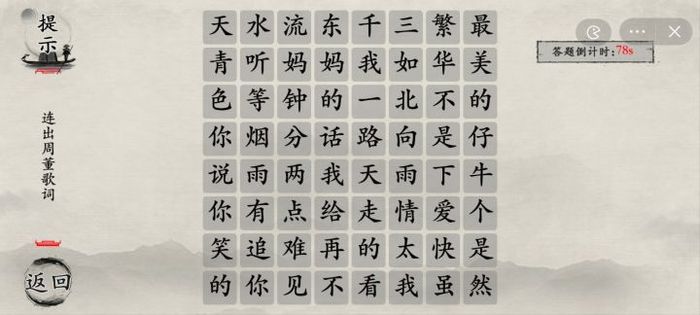 提示
连出周董歌词
返回
答题倒计时:78s
天水流东千三繁最
青听妈妈我如华美
色等钟的一北不的
你烟分话路向是仔
说雨两我天雨下牛
你有点给走情爱个
笑追难再的太快是
的你见不看我虽然